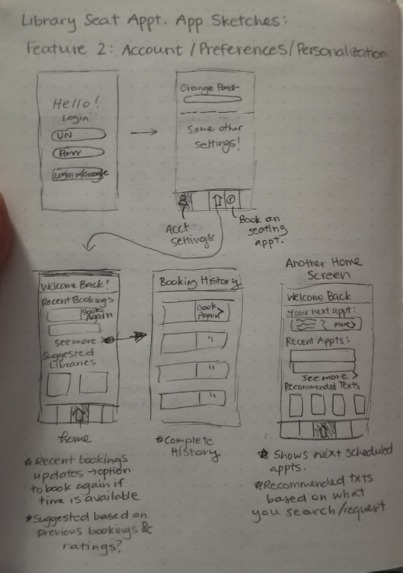 Library Seat Appt. App Sketches:
Feature 2: Account/Preferences/Personalization
Hello!
Login
UN
Pass
Login w/Google
Change Pass
Some other
settings!
Acct
settings
Book an
seating
appt.
Welcome Back!
Recent Bookings
Book
Again
see more
Suggested
Libraries
home
*Recent bookings
updates → option
to book again if
time is available
*Suggested based on
previous bookings &
ratings?
Booking History
Book
Again
"
"
"
*Complete
History
Another Home
Screen
Welcome Back
Your next appt:
More>
Recent Appts:
see more >
Recommended Texts
* Shows next scheduled
appts.
*Recommended txts
based on what
you search/request